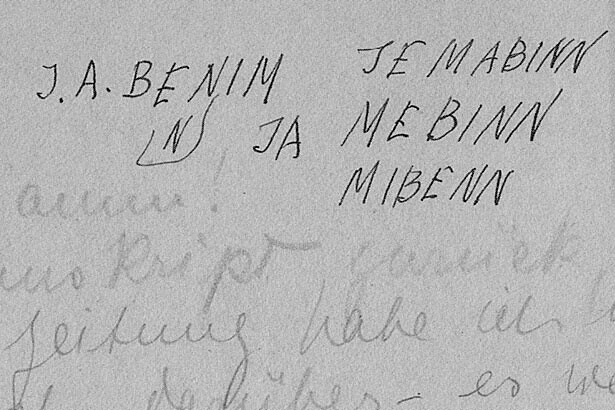 J.A. BENIM JE MABINN
(N) JA MEBINN
MIBENN
amm!
uskript zurück
Zeitung habe ich
darüber – es